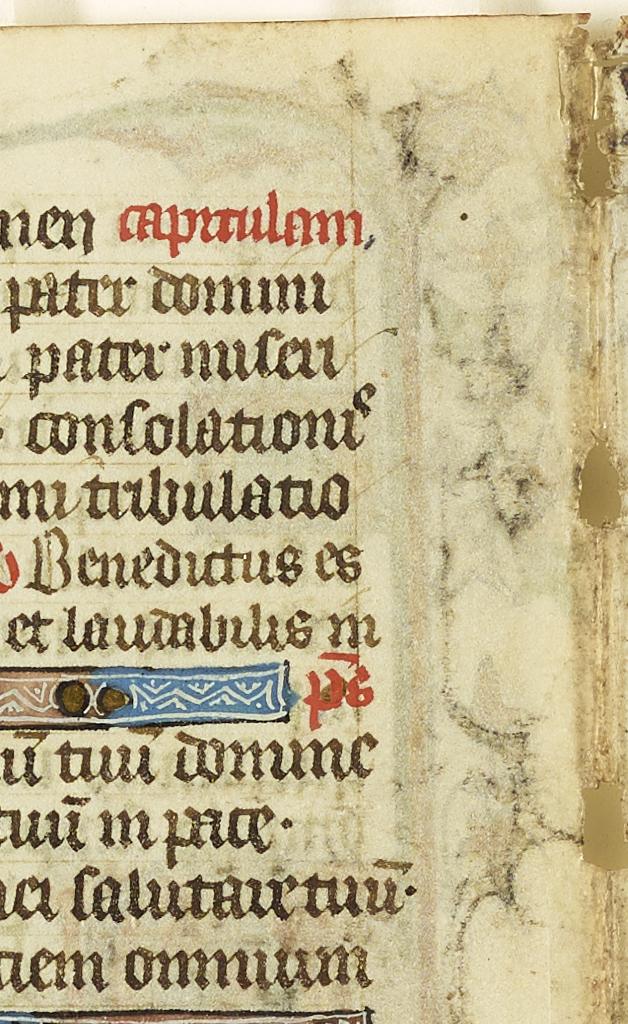 men capitulum,
pater domini
pater miseri
consolationis
mi tribulatio
Benedictus es
et laudabilis in
ps̄
ū tuū domine
tuū in pace·
salutare tuū·
ciem omnium